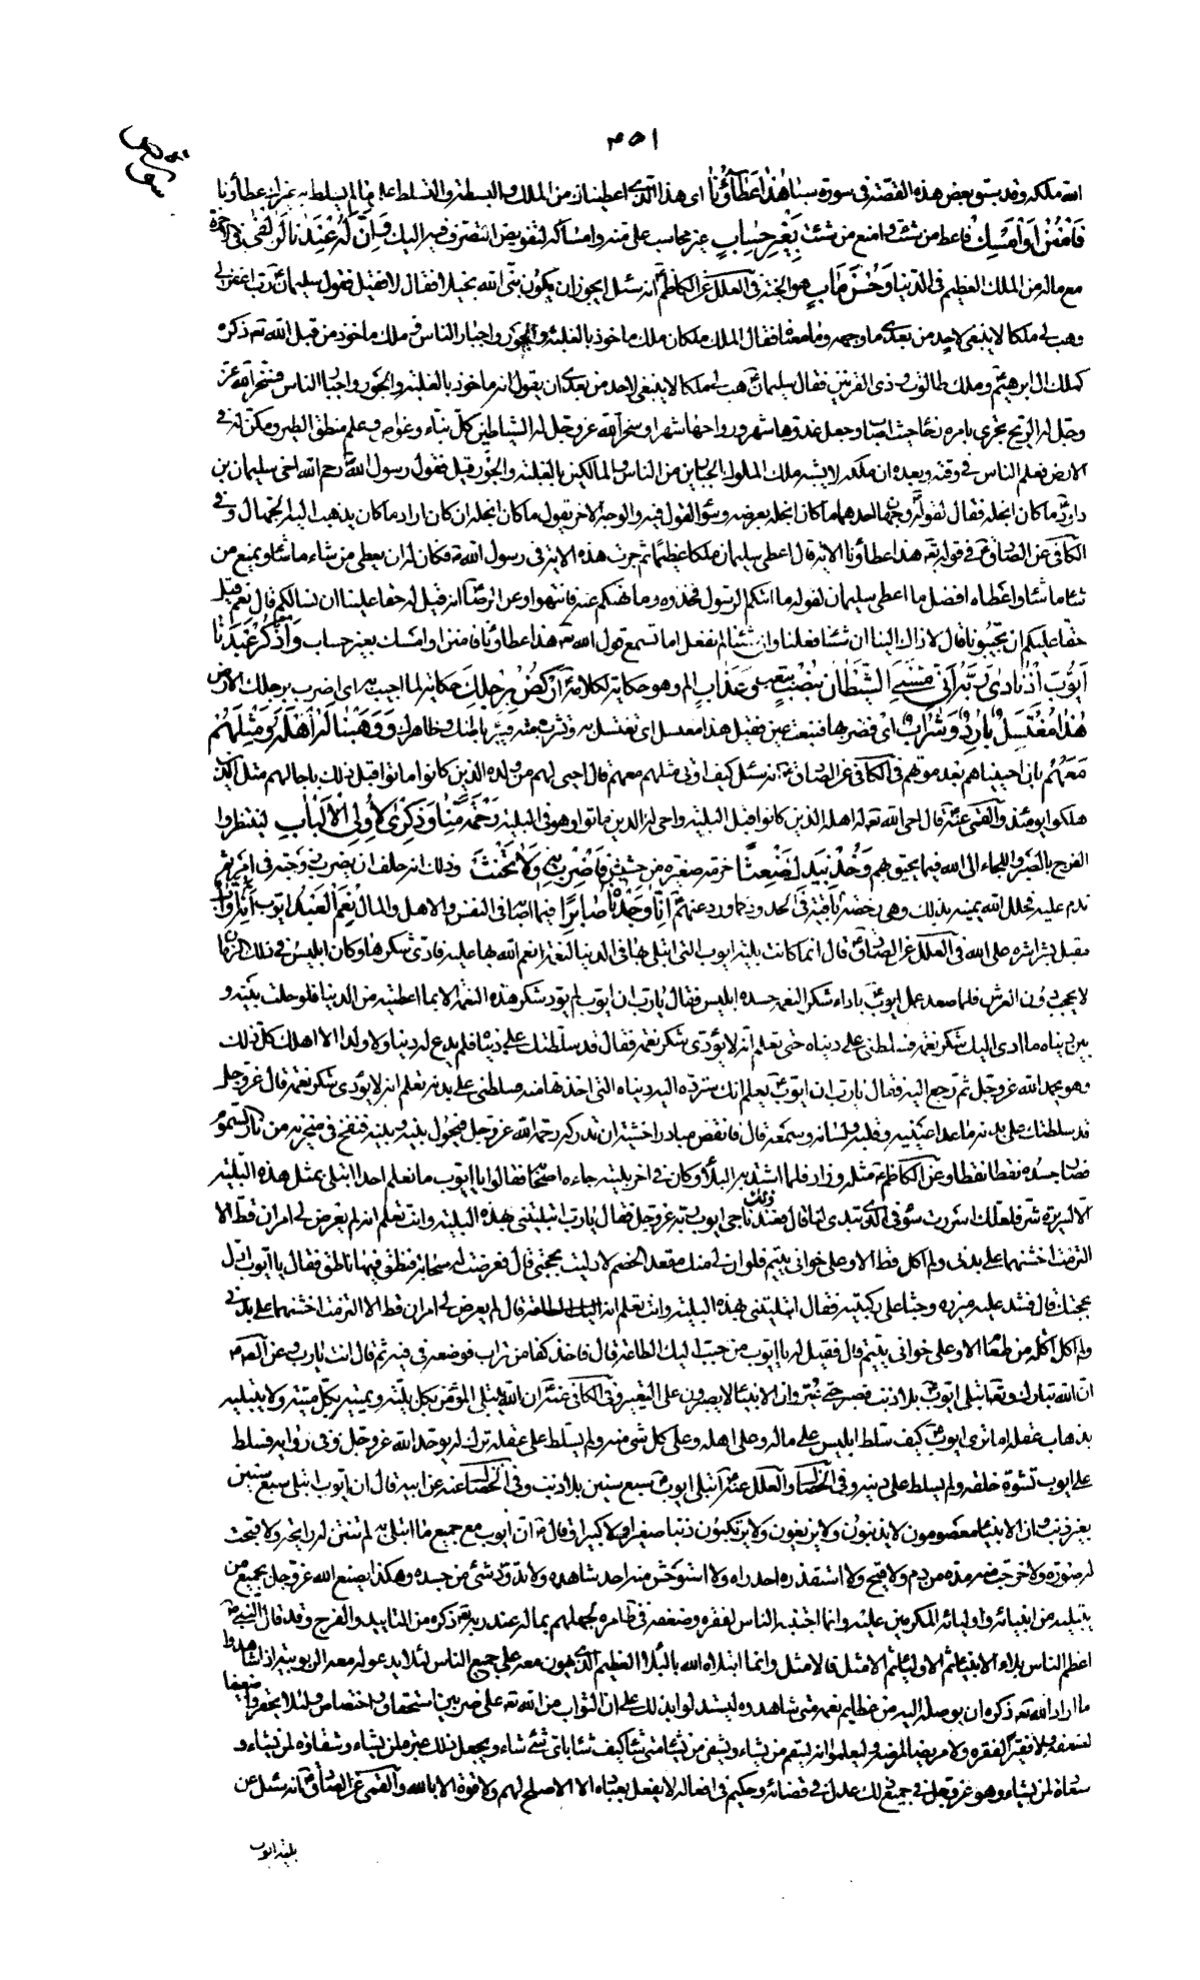 ٤٥١
سورة ص
الله ملكه وقد سبق بعض هذه القصة في سورة سبأ هذا عطاؤنا اى هذا الذى اعطيناك من الملك والبسطة والتسلط على ما لم يسلط به غيرك عطاؤنا
فامنن او امسك فاعط من شئت وامنع من شئت بغير حساب غير محاسب على منه وامساكه لتفويض التصرف فيه اليك وان له عندنا لزلفى فى الاخرة
مع ماله من الملك العظيم فى الدنيا وحسن مآب هو الجنة فى العلل عن الكاظم انه سئل ايجوز ان يكون نبى الله بخيلا فقال لا فقيل فقول سليمان رب اغفر لى
وهب لى ملكا لا ينبغى لاحد من بعدى ما وجهه وما معناه فقال الملك ملكان ملك ماخوذ بالغلبة والجور واجبار الناس وملك ماخوذ من قبل الله تع ذكره
كملك ال ابرهيم وملك طالوت وذى القرنين فقال سليمان هب لى ملكا لا ينبغى لاحد من بعدى ان يقول انه ماخوذ بالغلبة والجور واجبار الناس فسخر الله عز
وجل له الريح تجرى بامره رخاء حيث اصاب وجعل غدوها شهر ورواحها شهر وسخر الله عز وجل له الشياطين كل بناء وغواص وعلم منطق الطير ومكن له فى
الارض فعلم الناس فى وقته وبعده ان ملكه لا يشبه ملك الملوك الجبارين من الناس والمالكين بالغلبة والجور قيل فقول رسول الله رحم الله اخى سليمان بن
داود ما كان ابخله فقال لقوله وجهان احدهما ما كان ابخله بعرضه وسوء القول فيه والوجه الاخر يقول ما كان ابخله ان كان اراد ما كان يذهب اليه الجهال وفى
الكافى عن الصادق فى قوله تع هذا عطاؤنا الاية قال اعطى سليمان ملكا عظيما ثم جرت هذه الاية فى رسول الله ص فكان له ان يعطى من شاء ما شاء ويمنع من
شاء ما شاء واعطاه افضل مما اعطى سليمان لقوله ما اتيكم الرسول فخذوه وما نهيكم عنه فانتهوا وعن الرضا انه قيل له حقا علينا ان نسالكم قال نعم قيل
حقا عليكم ان تجيبونا قال لا ذاك الينا ان شئنا فعلنا وان شئنا لم نفعل اما تسمع قول الله تع هذا عطاؤنا فامنن او امسك بغير حساب واذكر عبدنا
ايوب اذ نادى ربه انى مسنى الشيطان بنصب بتعب وعذاب الم وهو حكاية لكلامه اركض برجلك حكاية لما اجيب به اى اضرب برجلك الارض
هذا مغتسل بارد وشراب اى فضربها فنبعت عين فقيل هذا مغتسل اى تغتسل به وتشرب منه فيبرء باطنك وظاهرك ووهبنا له اهله ومثلهم
معهم بان احييناهم بعد موتهم فى الكافى عن الصادق انه سئل كيف اوتى مثلهم معهم قال احيى لهم من ولده الذين كانوا ماتوا قبل ذلك باجالهم مثل الذين
هلكوا يومئذ والقمى عنه قال احيى الله تع له اهله الذين كانوا قبل البلية واحى له الذين ماتوا وهو فى البلية رحمة منا وذكرى لاولى الالباب لينتظروا
الفرج بالصبر واللجاء الى الله فيما يحيق بهم وخذ بيدك ضغثا حزمة صغيرة من خشب فاضرب به ولا تحنث وذلك انه حلف ان يضرب زوجته فى امر ثم
ندم عليه فحلل الله يمينه بذلك وهى رخصة باقية فى الحدود كما ورد عنهم انا وجدناه صابرا فيما اصابه فى النفس والاهل والمال نعم العبد ايوب انه اواب
مقبل بشراشره على الله فى العلل عن الصادق قال انما كانت بلية ايوب التى ابتلى بها فى الدنيا لنعمة انعم الله بها عليه فادى شكرها وكان ابليس فى ذلك الزمان
لا يحجب دون العرش فلما صعد عمل ايوب باداء شكر النعمة حسده ابليس فقال يا رب ان ايوب لم يؤد شكر هذه النعمة الا بما اعطيته من الدنيا فلو حلت بينه و
بين دنياه ما ادى اليك شكر نعمة فسلطنى على دنياه حتى تعلم انه لا يؤدى شكر نعمة فقال قد سلطتك على دنياه فلم يدع له دنيا ولا ولدا الا اهلك كل ذلك
وهو يحمد الله عز وجل ثم رجع اليه فقال يا رب ان ايوب يعلم انك سترد اليه دنياه التى اخذتها منه فسلطنى على بدنه تعلم انه لا يؤدى شكر نعمة قال عز وجل
قد سلطتك على بدنه ما عدا عينيه وقلبه ولسانه وسمعه قال فانقض مبادرا خشية ان تدركه رحمة الله عز وجل فيحول بينه وبينه فنفخ فى منخريه من نار السموم
فصار جسده نقطا نقطا وعن الكاظم مثله وزاد فلما اشتد به البلاء وكان فى اخر بليته جاءه اصحابه فقالوا يا ايوب ما نعلم احدا ابتلى بمثل هذه البلية
الا لسريرة شر فلعلك اسررت سوء فى الذى تبدى لنا قال فعند ذلك ناجى ايوب ربه عز وجل فقال يا رب ابتليتنى بهذه البلية وانت تعلم انه لم يعرض لى امران قط الا
الزمت اخشنهما على بدنى ولم اكل قط الا وعلى خوانى يتيم فلو ان لى منك مقعد الخصم لادليت بحجتى قال فعرضت له سحابة فنطق فيها ناطق فقال يا ايوب ادل
بحجتك قال فشد عليه ميزره وجثا على ركبتيه فقال ابتليتنى بهذه البلية وانت تعلم انه لم يعرض لى امران قط الا الزمت اخشنهما على بدنى
ولم اكل اكلة من طعام الا وعلى خوانى يتيم قال فقيل له يا ايوب من حبب اليك الطاعة قال فاخذ كفا من تراب فوضعه فى فيه ثم قال انت يا رب وعن الصادق
ان الله تبارك وتعالى ابتلى ايوب بلا ذنب فصبر حتى عير وان الانبياء لا يصبرون على التعيير وفى الكافى عنه ان الله يبتلى المؤمن بكل بلية ويميته بكل ميتة ولا يبتليه
بذهاب عقله اما ترى ايوب كيف سلط ابليس على ماله وعلى اهله وعلى كل شىء منه ولم يسلط على عقله ترك له يوحد الله عز وجل وفى رواية فسلط
على ايوب فشوه خلقه ولم يسلط على دينه وفى الخصال والعلل عنه ابتلى ايوب سبع سنين بلا ذنب وفى الخصال عنه عن ابيه قال ان ايوب ابتلى سبع سنين
بغير ذنب وان الانبياء معصومون لا يذنبون ولا يزيغون ولا يرتكبون ذنبا صغيرا ولا كبيرا وقال ان ايوب مع جميع ما ابتلى به لم تنتن له رايحة ولا قبحت
له صورة ولا خرجت منه مدة من دم ولا قيح ولا استقذره احد راه ولا استوحش منه احد شاهده ولا تدود شىء من جسده وهكذا يصنع الله عز وجل بجميع من
يبتليه من انبيائه واوليائه المكرمين عليه وانما اجتنبه الناس لفقره وضعفه فى ظاهره لجهلهم بما له عند ربه تع ذكره من التاييد والفرج وقد قال النبى ص
اعظم الناس بلاء الانبياء ثم الاولياء ثم الامثل فالامثل وانما ابتلاه الله بالبلاء العظيم الذى يهون معه على جميع الناس لئلا يدعوا له معه الربوبية اذا شاهدوا
ما اراد الله تع ذكره ان يوصله اليه من عظايم نعمه متى شاهدوه ليستدلوا بذلك على ان الثواب من الله تع على ضربين استحقاق واختصاص ولئلا يحقروا ضعيفا
لضعفه ولا فقيرا لفقره ولا مريضا لمرضه وليعلموا انه يسقم من يشاء ويشفى من يشاء متى شاء كيف شاء باى شىء شاء ويجعل ذلك عبرة لمن يشاء وشقاوة لمن يشاء و
سعادة لمن يشاء وهو عز وجل فى جميع ذلك عدل فى قضائه وحكيم فى افعاله لا يفعل بعباده الا الاصلح لهم ولا قوة الا بالله والقمى عن الصادق انه سئل عن
بلية ايوب